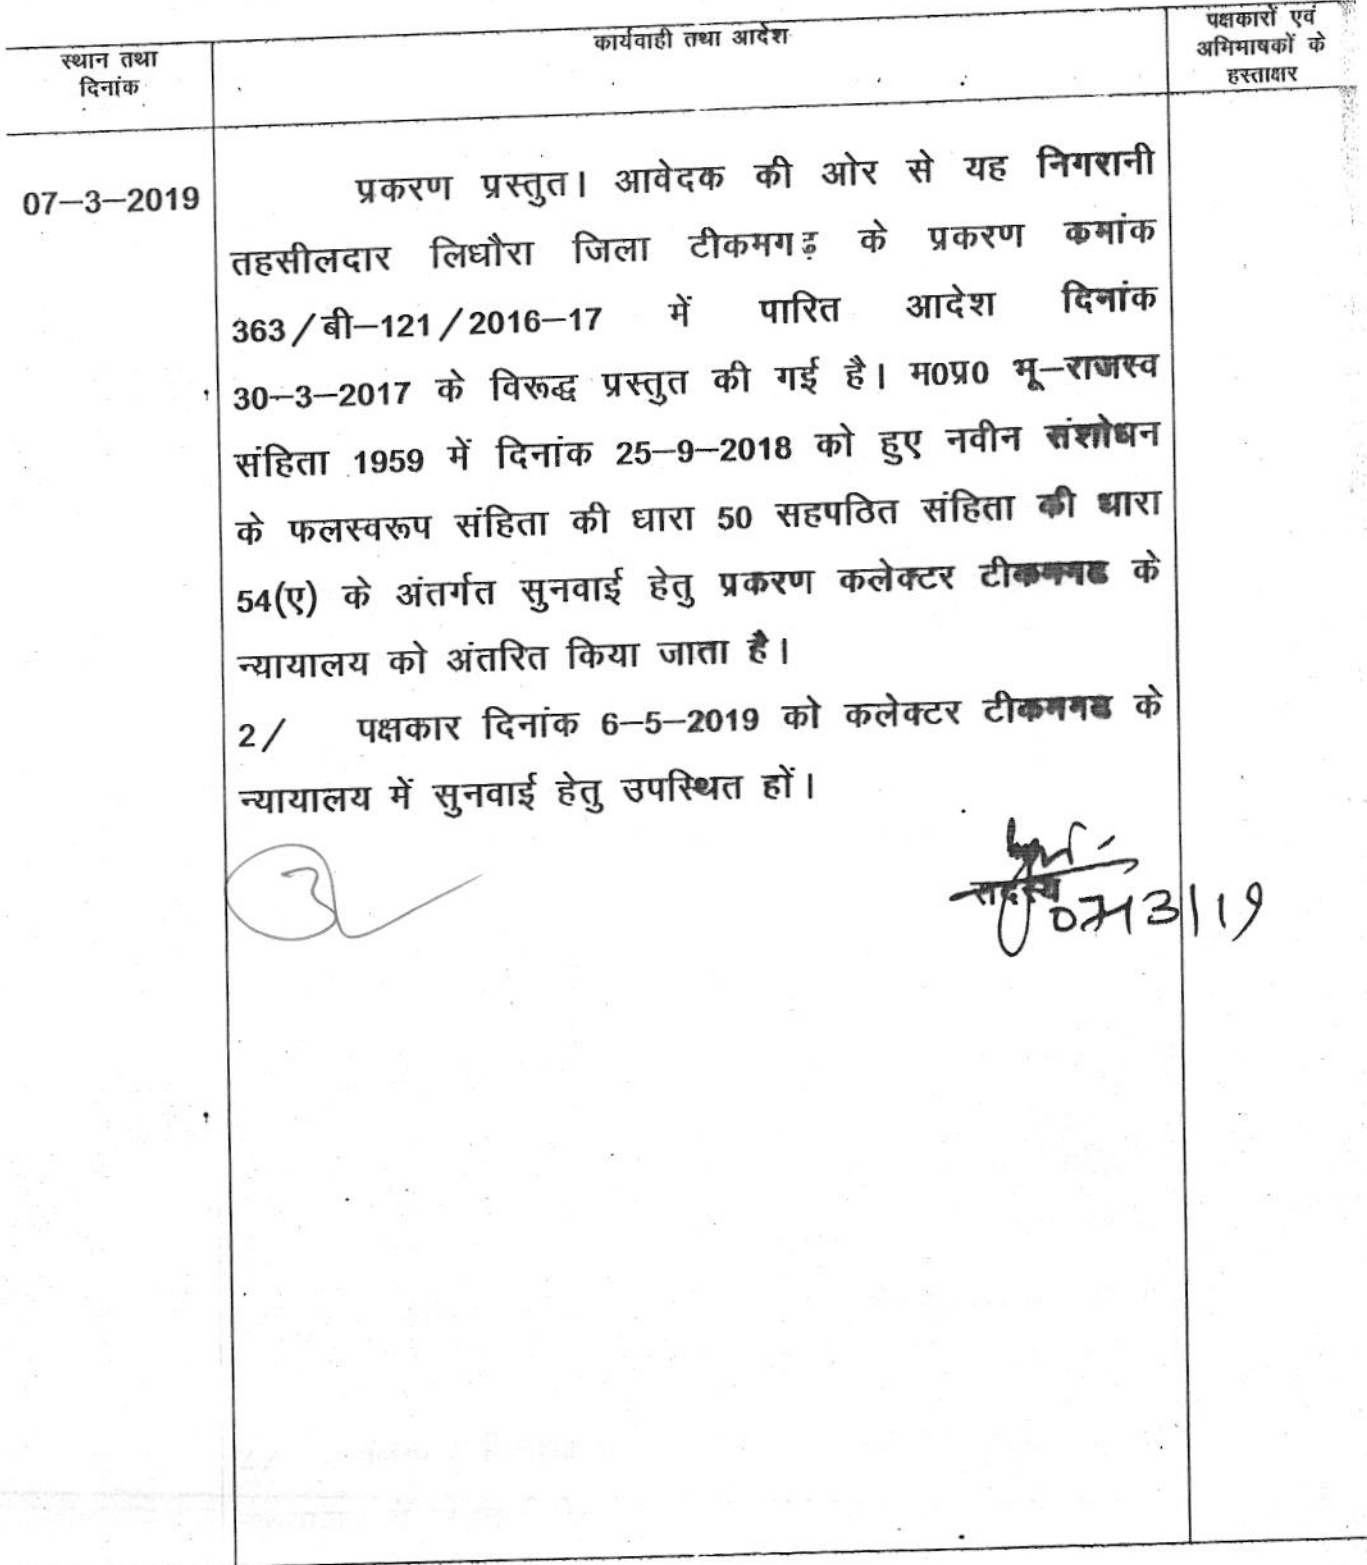 स्थान तथा
दिनांक
कार्यवाही तथा आदेश
पक्षकारों एवं
अभिभाषकों के
हस्ताक्षर
07–3–2019
प्रकरण प्रस्तुत। आवेदक की ओर से यह निगरानी
तहसीलदार लिधौरा जिला टीकमगढ़ के प्रकरण कमांक
363/बी–121/2016–17 में पारित आदेश दिनांक
30–3–2017 के विरूद्ध प्रस्तुत की गई है। म0प्र0 भू–राजस्व
संहिता 1959 में दिनांक 25–9–2018 को हुए नवीन संशोधन
के फलस्वरूप संहिता की धारा 50 सहपठित संहिता की धारा
54(ए) के अंतर्गत सुनवाई हेतु प्रकरण कलेक्टर टीकमगढ के
न्यायालय को अंतरित किया जाता है।
2/ पक्षकार दिनांक 6–5–2019 को कलेक्टर टीकमगढ के
न्यायालय में सुनवाई हेतु उपस्थित हों।
सदस्य
07/3/19